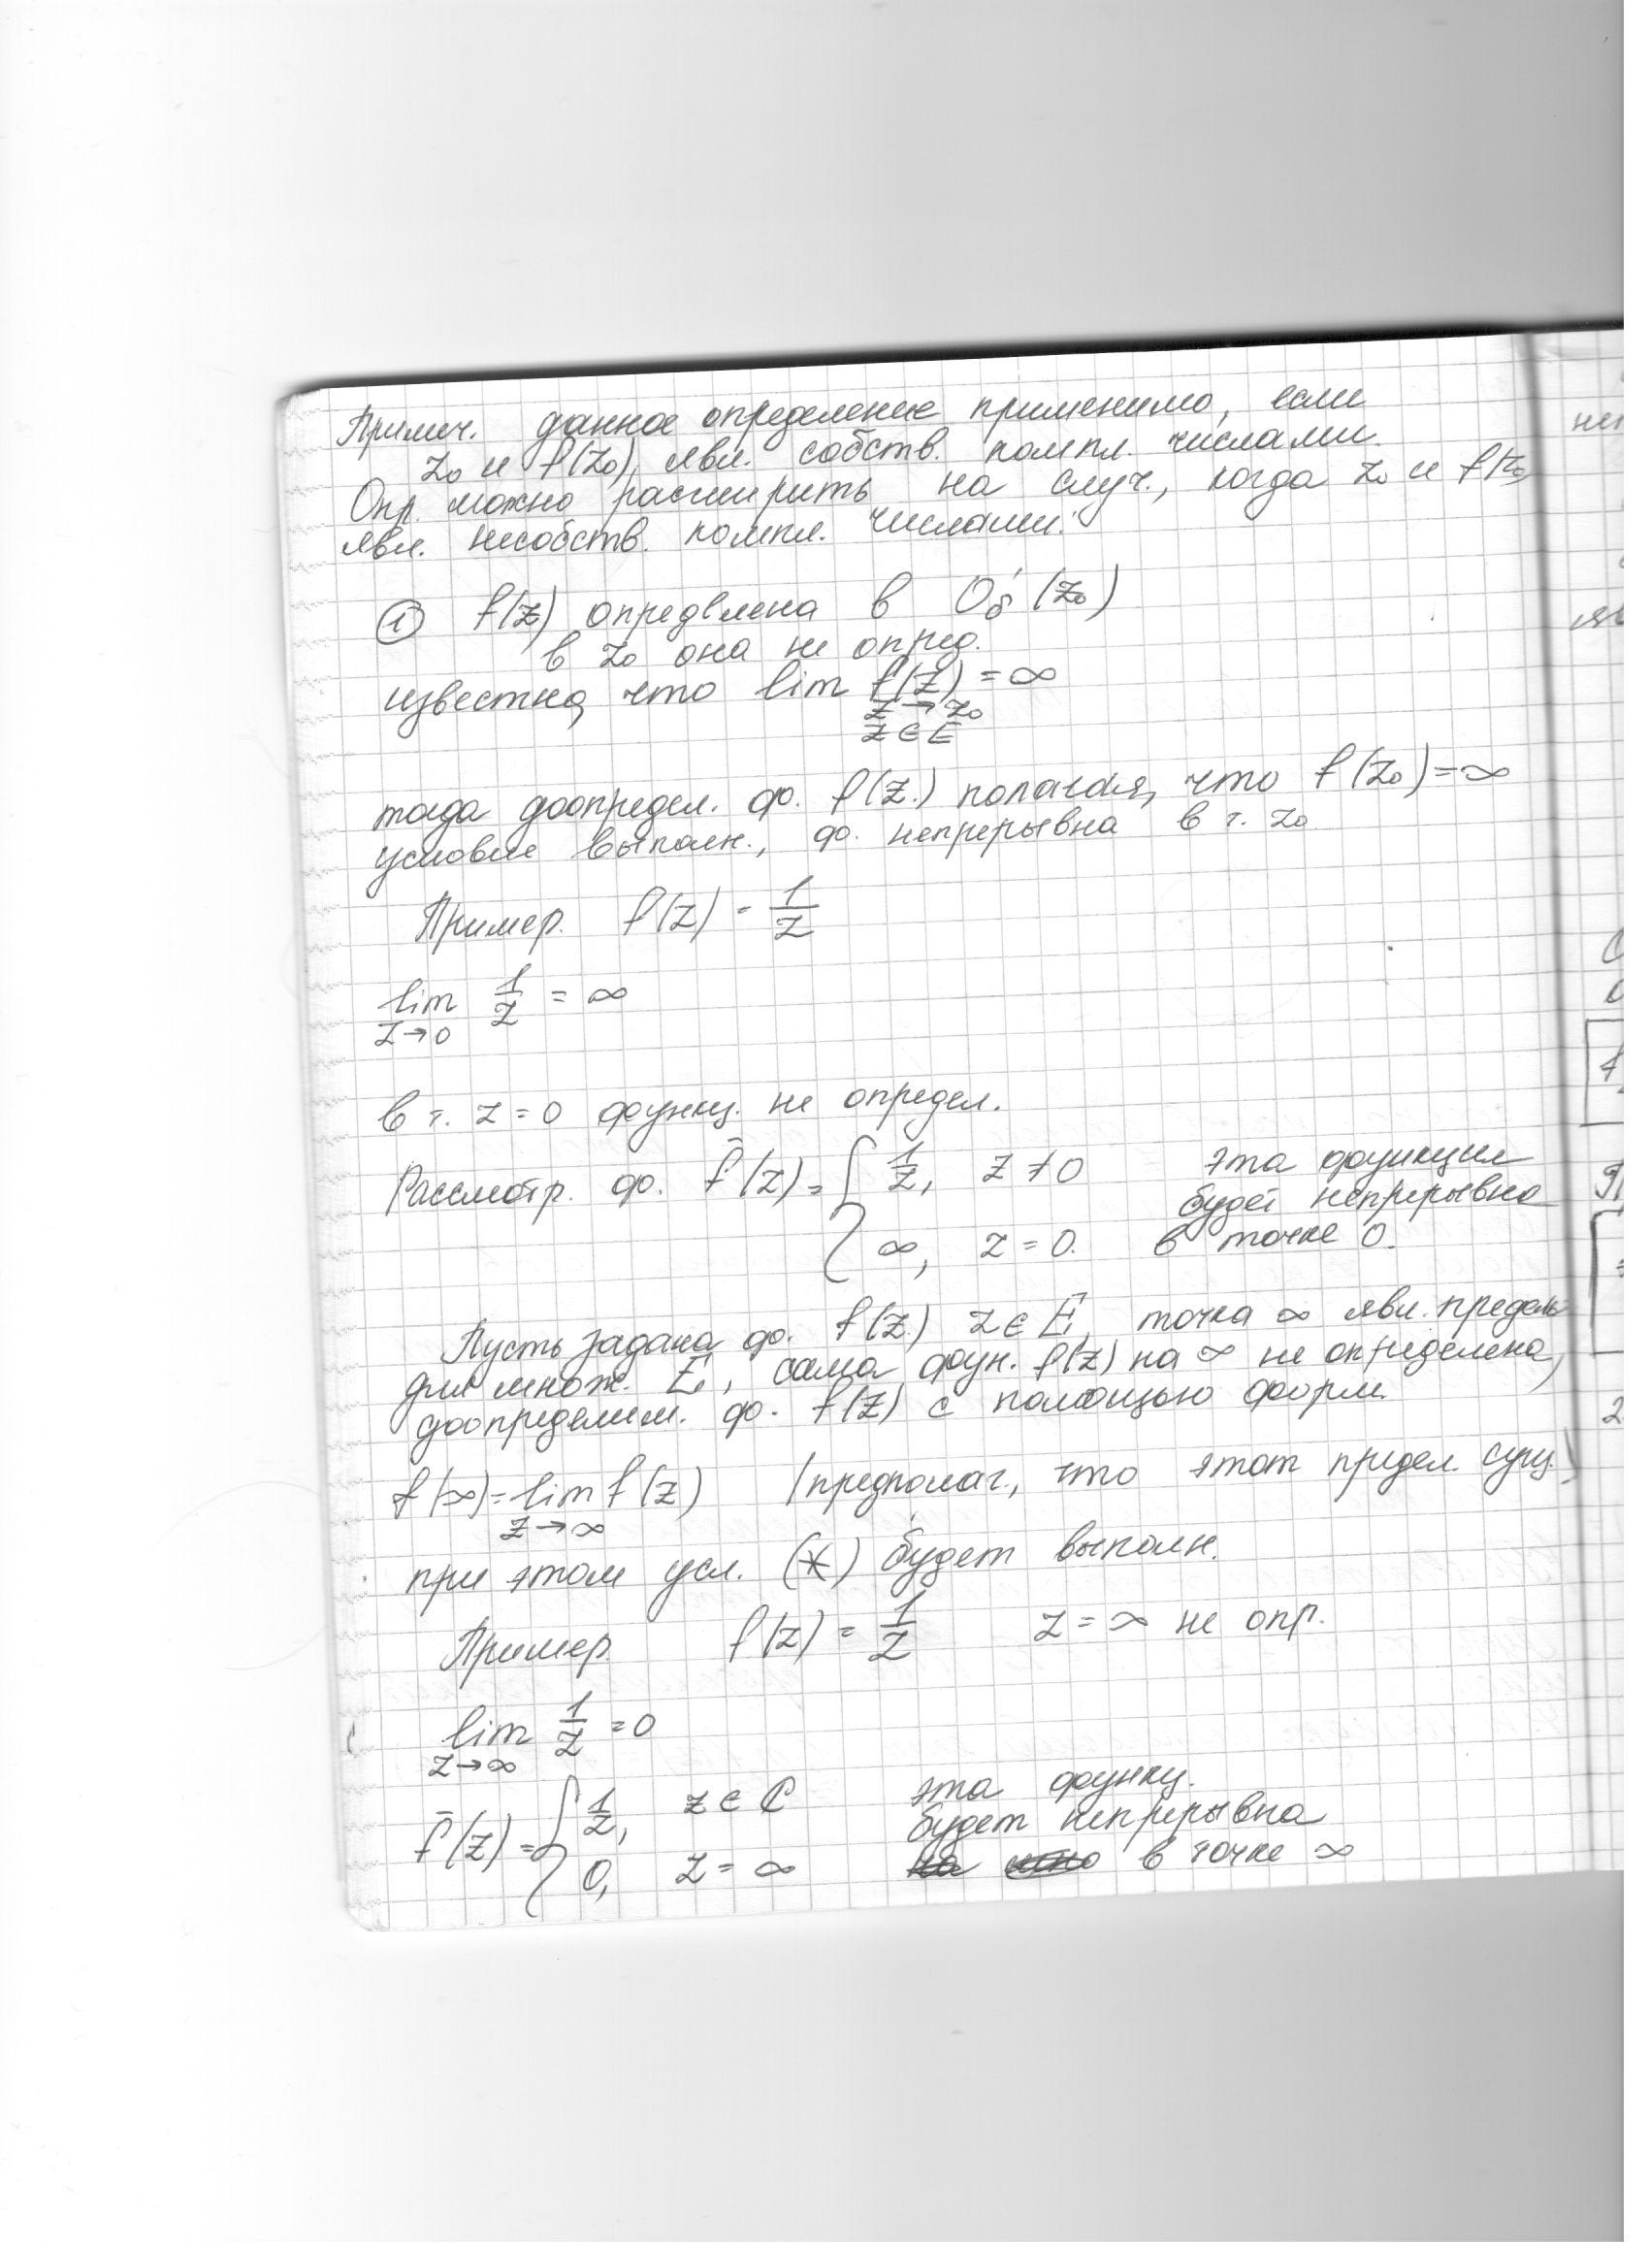 Примеч. данное определение применимо, если
z₀ и f(z₀) явл. собств. компл. числами.
Опр. можно расширить на случ., когда z₀ и f(z₀)
явл. несобств. компл. числами:
① f(z) определена в O'δ (z₀)
в z₀ она не опред.
известно, что lim f(z) = ∞
z → z₀
z ∈ E
тогда доопредел. ф. f(z) полагая, что f(z₀) = ∞
условие выполн., ф. непрерывна в т. z₀
Пример. f(z) = 1/z
lim 1/z = ∞
z→0
в т. z = 0 функц. не определ.
Рассмотр. ф. f̄(z) = { 1/z, z ≠ 0 эта функция
будет непрерывна
∞, z = 0. в точке 0.
Пусть задана ф. f(z) z ∈ E, точка ∞ явл. предель
для множ. E, сама фун. f(z) на ∞ не определена,
доопределим. ф. f(z) с помощью форм.
f(∞) = lim f(z) (предполаг., что этот предел. сущ.)
z → ∞
при этом усл. (*) будет выполн.
Пример. f(z) = 1/z z = ∞ не опр.
lim 1/z = 0
z → ∞
f̄(z) = { 1/z, z ∈ ℂ эта функц.
будет непрерывна
0, z = ∞ в точке ∞